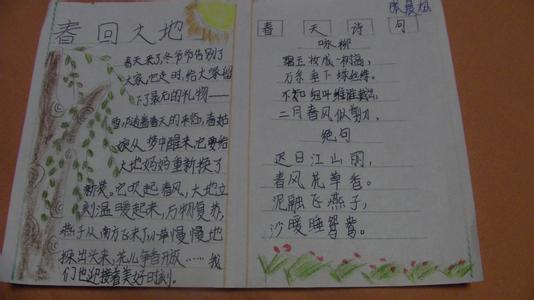 春回大地
春天来了,冬爷爷告别了
大家,他走时,给大家留
下了最后的礼物——
雪,随着春天的来临,春姑
娘从梦中醒来,它要给
大地妈妈重新换了
新装。它吹起春风,大地立
刻温暖起来,万物复苏,
燕子从南方飞来了,小草慢慢地
探出头来,花儿争着开放……我
们也迎接着美好时刻。
春天诗句
咏柳
碧玉妆成一树高,
万条垂下绿丝绦。
不知细叶谁裁出,
二月春风似剪刀。
绝句
迟日江山丽,
春风花草香。
泥融飞燕子,
沙暖睡鸳鸯。